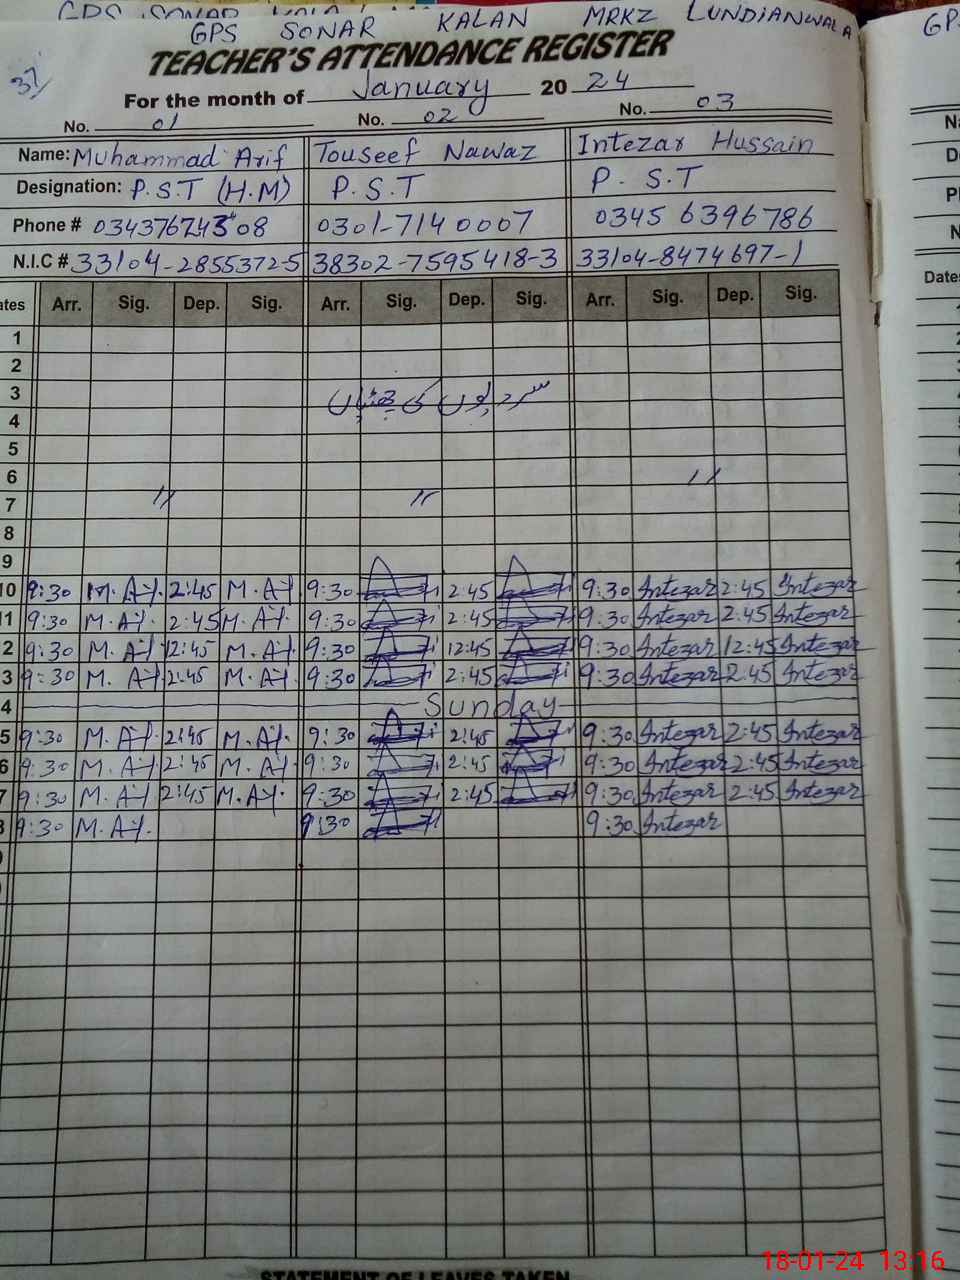 GPS SONAR KALAN MRKZ LUNDIANWALA
GP
37
TEACHER'S ATTENDANCE REGISTER
For the month of January 20 24
No. 01 No. 02 No. 03
Name: Muhammad Arif Touseef Nawaz Intezar Hussain
Designation: P.S.T (H.M) P.S.T P.S.T
Phone # 03437674308 0301-7140007 0345 6396786
N.I.C # 33104-2855372-5 38302-7595418-3 33104-8474697-1
ates Arr. Sig. Dep. Sig. Arr. Sig. Dep. Sig. Arr. Sig. Dep. Sig.
Dates
1
2
3 سردیوں کی چھٹیاں
4
5
6 "
7 " "
8
9
10 9:30 M.Af. 2:45 M.Af. 9:30 2:45 9:30 Intezar 2:45 Intezar
11 9:30 M.Af. 2:45 M.Af. 9:30 2:45 9:30 Intezar 2:45 Intezar
2 9:30 M.Af. 12:45 M.Af. 9:30 12:45 9:30 Intezar 12:45 Intezar
3 9:30 M.Af. 2:45 M.Af. 9:30 2:45 9:30 Intezar 2:45 Intezar
4 Sunday
5 9:30 M.Af. 2:45 M.Af. 9:30 2:45 9:30 Intezar 2:45 Intezar
6 9:30 M.Af. 2:45 M.Af. 9:30 2:45 9:30 Intezar 2:45 Intezar
7 9:30 M.Af. 2:45 M.Af. 9:30 2:45 9:30 Intezar 2:45 Intezar
8 9:30 M.Af. 9:30 9:30 Intezar
STATEMENT OF LEAVES TAKEN
18-01-24 13:16